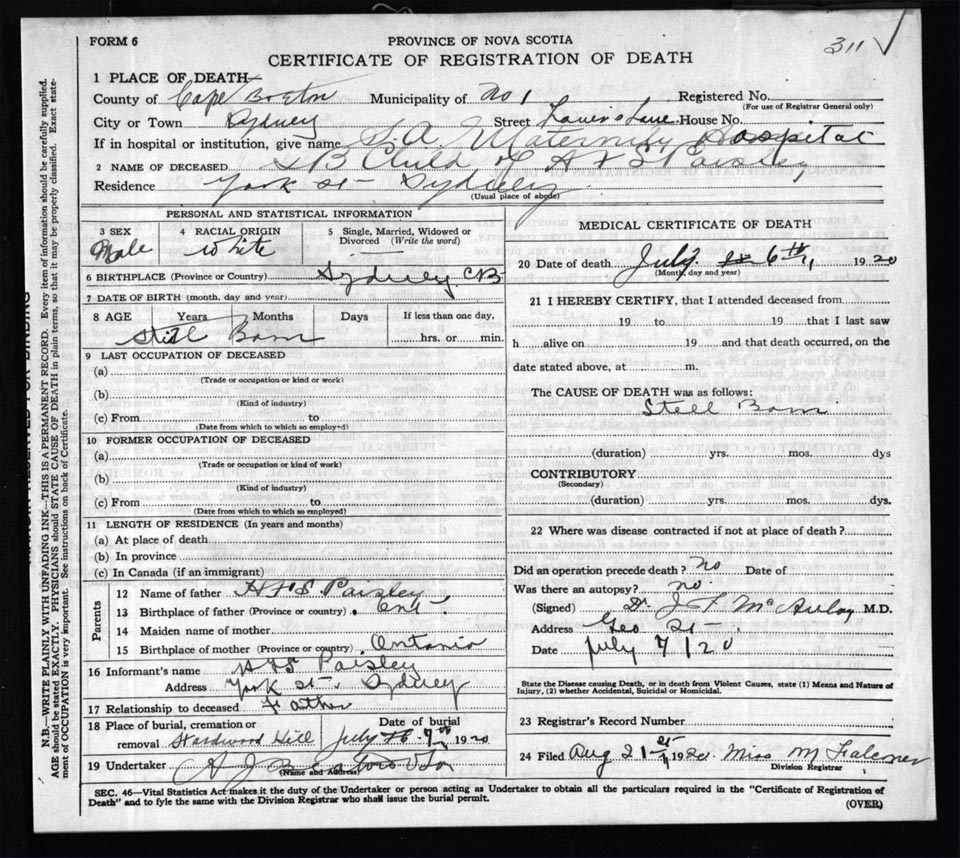 FORM 6
PROVINCE OF NOVA SCOTIA
311 ✓
CERTIFICATE OF REGISTRATION OF DEATH
1 PLACE OF DEATH—
County of Cape Breton Municipality of No 1 Registered No.
(For use of Registrar General only)
City or Town Sydney Street Lane House No.
If in hospital or institution, give name S.A. Maternity Hospital
2 NAME OF DECEASED SB Child of Paisley
Residence York St— Sydney
(Usual place of abode)
PERSONAL AND STATISTICAL INFORMATION
3 SEX 4 RACIAL ORIGIN 5 Single, Married, Widowed or Divorced (Write the word)
Male White —
6 BIRTHPLACE (Province or Country) Sydney CB
7 DATE OF BIRTH (month, day and year)
8 AGE Years Months Days If less than one day,
Still Born hrs. or min.
9 LAST OCCUPATION OF DECEASED
(a)
(Trade or occupation or kind or work)
(b)
(Kind of industry)
(c) From to
(Date from which to which so employed)
10 FORMER OCCUPATION OF DECEASED
(a)
(Trade or occupation or kind of work)
(b)
(Kind of industry)
(c) From to
(Date from which to which so employed)
11 LENGTH OF RESIDENCE (In years and months)
(a) At place of death
(b) In province
(c) In Canada (if an immigrant)
Parents
12 Name of father Paisley
13 Birthplace of father (Province or country) Ont
14 Maiden name of mother
15 Birthplace of mother (Province or country) Ontario
16 Informant's name Paisley
Address York St. Sydney
17 Relationship to deceased Father
18 Place of burial, cremation or Date of burial
removal Hardwood Hill July 7th 1920
19 Undertaker A J B
(Name and Address)
MEDICAL CERTIFICATE OF DEATH
20 Date of death July 6th 1920
(Month, day and year)
21 I HEREBY CERTIFY, that I attended deceased from
19 to 19 that I last saw
h alive on 19 and that death occurred, on the
date stated above, at m.
The CAUSE OF DEATH was as follows:
Still Born
(duration) yrs. mos. dys
CONTRIBUTORY
(Secondary)
(duration) yrs. mos. dys.
22 Where was disease contracted if not at place of death?
Did an operation precede death? no Date of
Was there an autopsy? no.
(Signed) Dr. J F McAulay M.D.
Address Geo St—
Date July 7/20
State the Disease causing Death, or in death from Violent Causes, state (1) Means and Nature of
Injury, (2) whether Accidental, Suicidal or Homicidal.
23 Registrar's Record Number
24 Filed Aug 21st 1920 Miss M Falconer
Division Registrar
SEC. 46—Vital Statistics Act makes it the duty of the Undertaker or person acting as Undertaker to obtain all the particulars required in the "Certificate of Registration of
Death" and to fyle the same with the Division Registrar who shall issue the burial permit.
(OVER)
N.B.—WRITE PLAINLY, WITH UNFADING INK—THIS IS A PERMANENT RECORD. Every item of information should be carefully supplied.
AGE should be stated EXACTLY. PHYSICIANS should STATE CAUSE OF DEATH in plain terms, so that it may be properly classified. Exact state-
ment of OCCUPATION is very important. See instructions on back of Certificate.